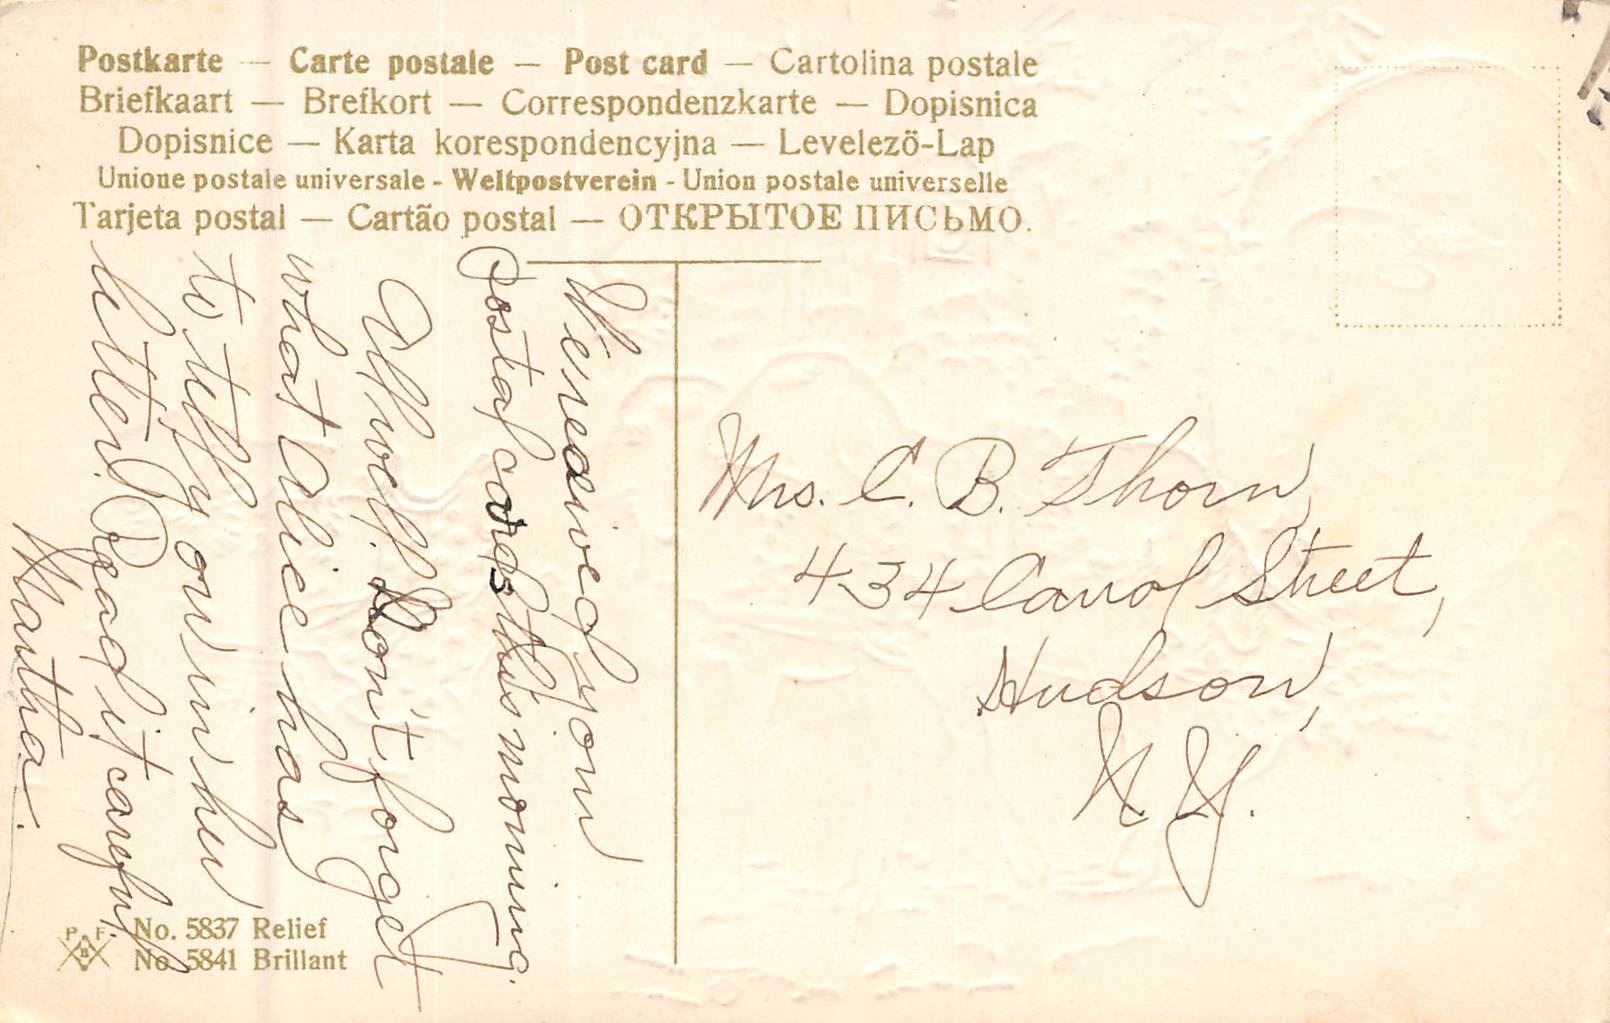 Postkarte — Carte postale — Post card — Cartolina postale
Briefkaart — Brefkort — Correspondenzkarte — Dopisnica
Dopisnice — Karta korespondencyjna — Levelező-Lap
Unione postale universale - Weltpostverein - Union postale universelle
Tarjeta postal — Cartão postal — ОТКРЫТОЕ ПИСЬМО.
We received your
postal cards this morning.
All well. Don't forget
what Alice has
to tell you in her
letter. Read it careful
Martha.
Mrs. C. B. Thorn,
434 Carrol Street,
Hudson,
N. Y.
P F
B
No. 5837 Relief
No. 5841 Brillant